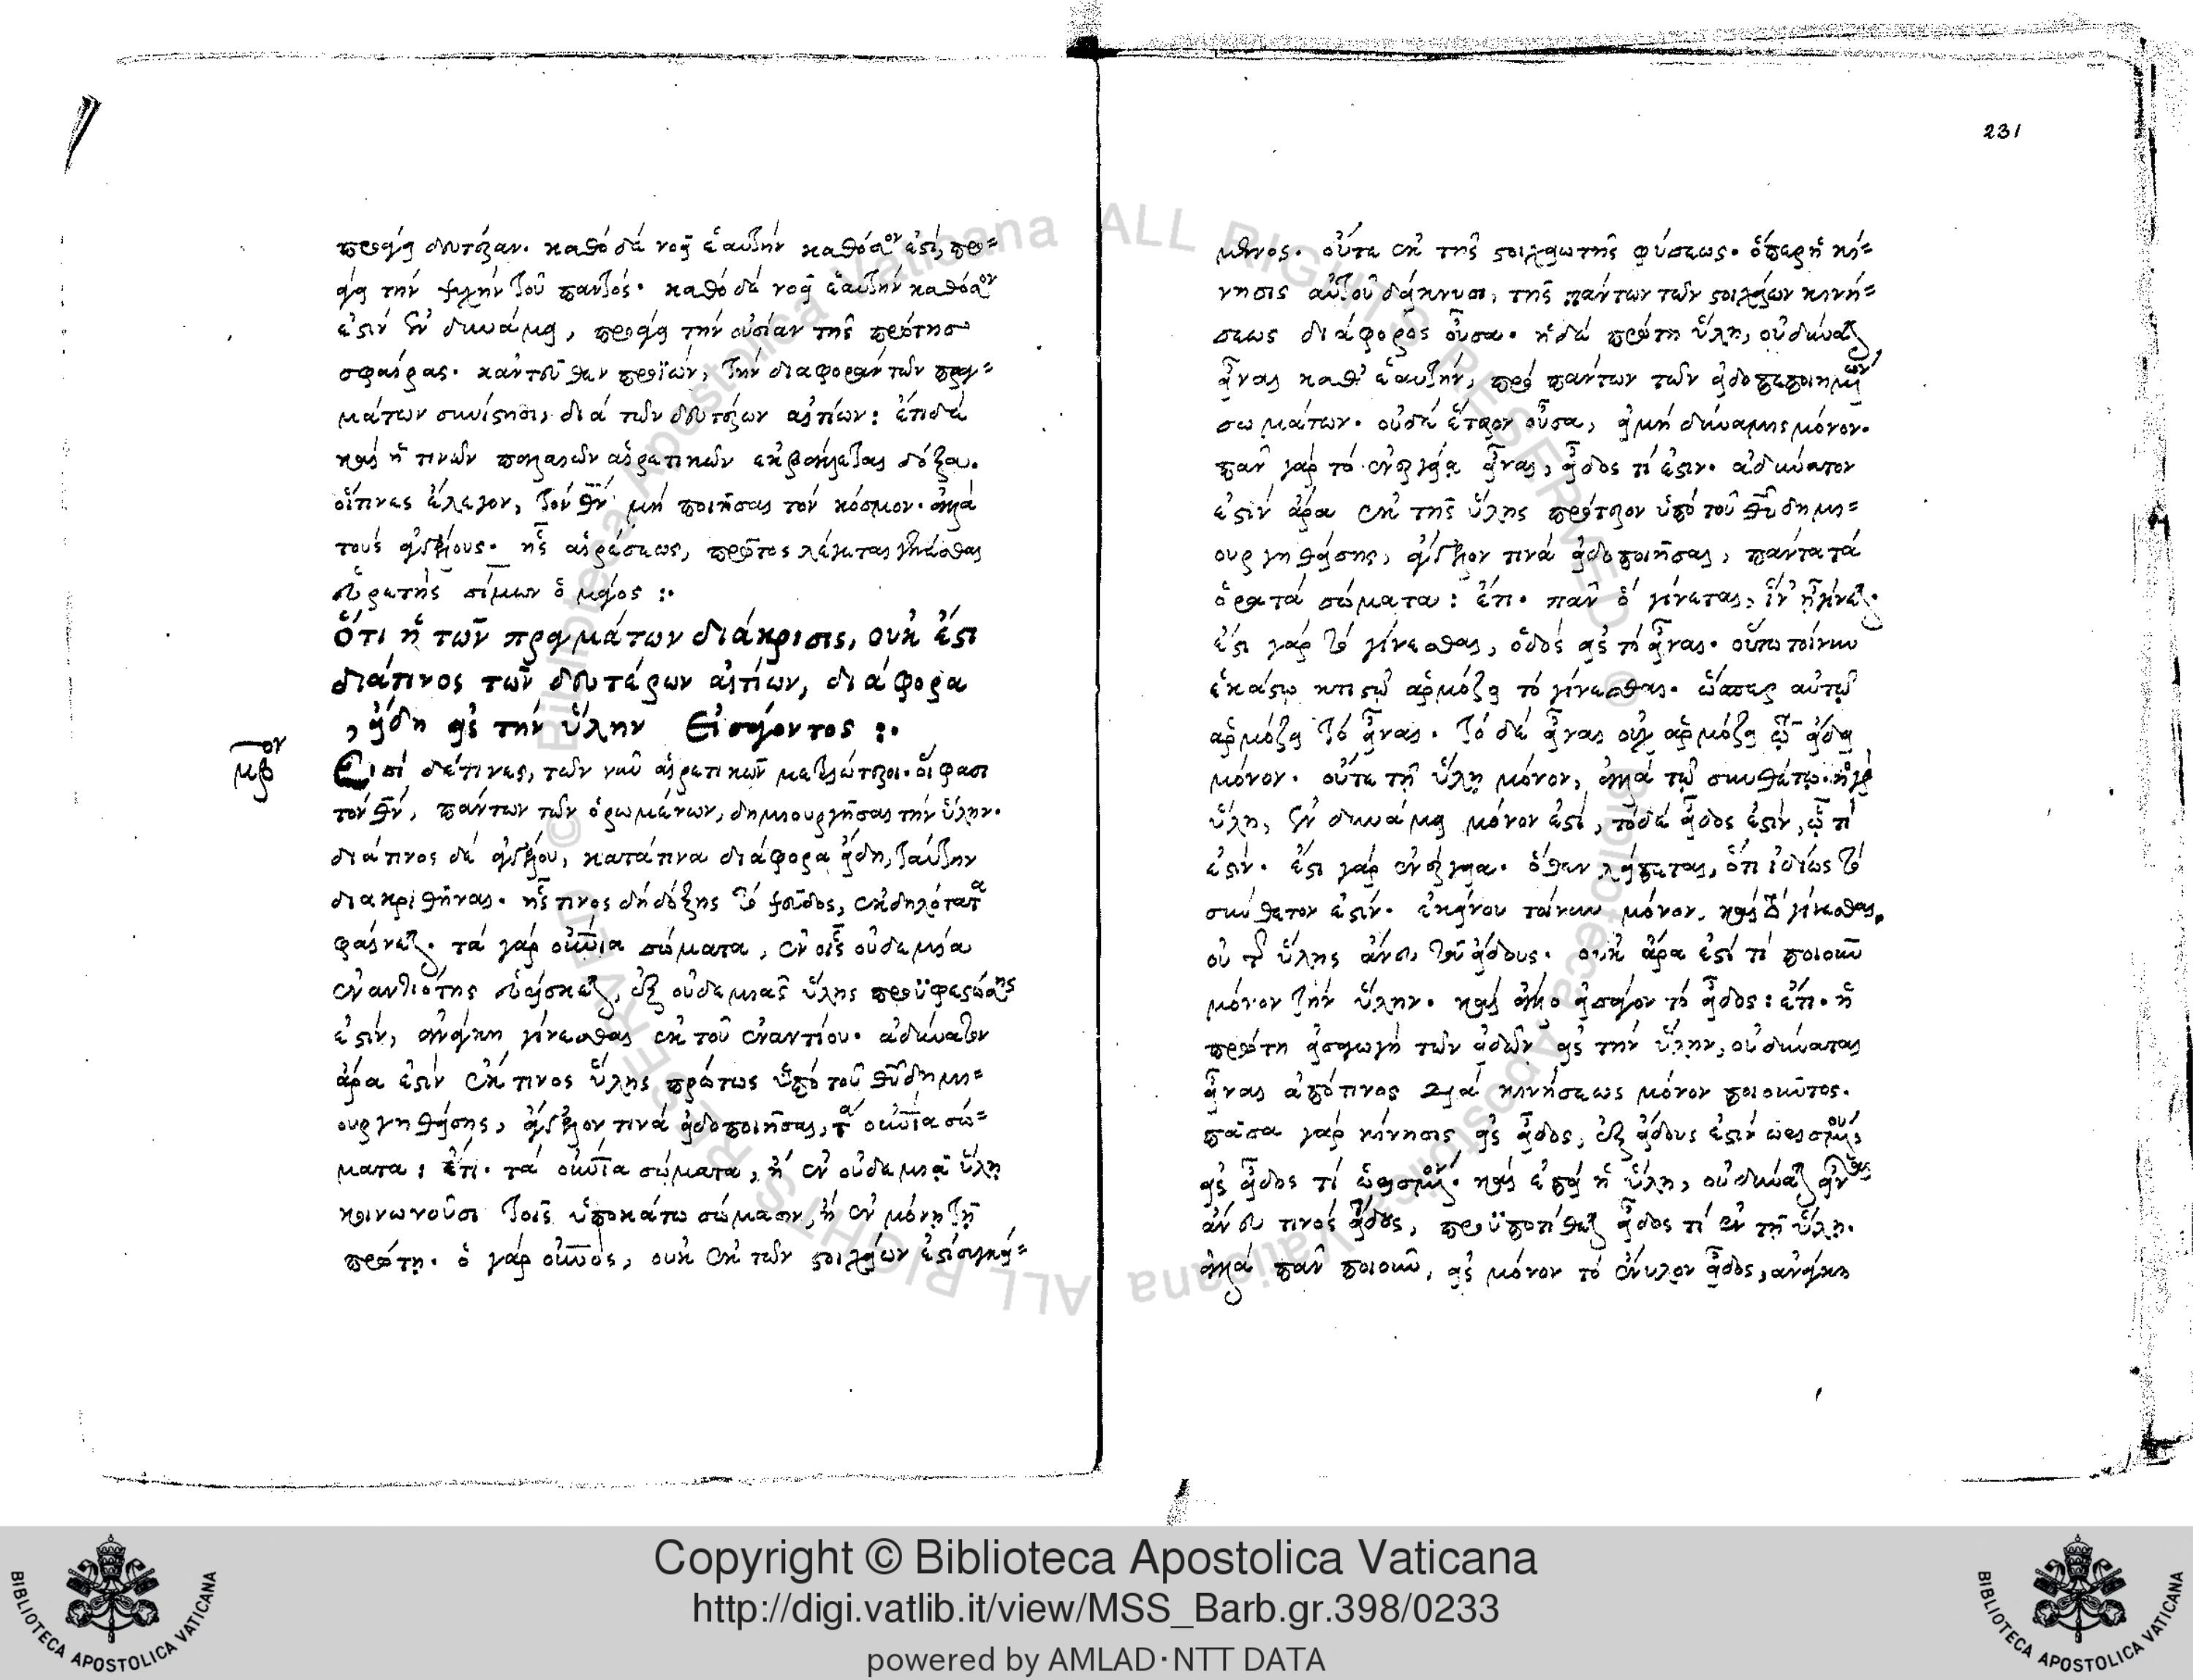 προάγει δευτέραν. καθὸ δὲ νοεῖ ἑαυτὴν καθόσον ἐστὶ, προ=
άγει τὴν ψυχὴν τοῦ παντός. καθὸ δὲ νοεῖ ἑαυτὴν καθόσον
ἐστὶν ἐν δυνάμει, προάγει τὴν οὐσίαν τῆς πρώτης
σφαίρας. κἀντεῦθεν προϊὼν, τὴν διαφορὰν τῶν πραγ=
μάτων συνίστησι, διὰ τῶν δευτέρων αἰτίων: ἔτι δὲ
καὶ ἥ τινων παλαιῶν αἱρετικῶν ἐκβάλλεται δόξα.
οἵτινες ἔλεγον, τὸν θν μὴ ποιῆσαι τὸν κόσμον. ἀλλὰ
τοὺς ἀγγέλους. ἧς αἱρέσεως, πρῶτος λέγεται γενέσθαι
εὑρετὴς σίμων ὁ μάγος :·
Ὅτι ἡ τῶν πραγμάτων διάκρισις, οὐκ ἔστι
διά τινος τῶν δευτέρων αἰτίων, διάφορα
, εἴδη εἰς τὴν ὕλην Εἰσάγοντος :·
μβον
Εἰσὶ δέ τινες, τῶν νῦν αἱρετικῶν μεταγώτεροι. οἵ φασι
τὸν θν, πάντων τῶν ὁρωμένων, δημιουργῆσαι τὴν ὕλην.
διά τινος δὲ ἀγγέλου, κατά τινα διάφορα εἴδη, ταύτην
διακριθῆναι. ἧς τινος δὴ δόξης τὸ ψεῦδος, ἐκδηλότατα
φαίνεται. τὰ γὰρ οὐνια σώματα, ἐν οἷς οὐδεμία
ἐναντιότης εὑρίσκεται, ἐξ οὐδεμιᾶς ὕλης προϋφεστώσης
ἐστὶν, ἀνάγκη γίνεσθαι ἐκ τοῦ ἐναντίου. ἀδύνατον
ἄρα ἐστὶν ἔκ τινος ὕλης πρώτως ὑπὸ τοῦ θυ δημι=
ουργηθείσης, ἄγγελον τινὰ εἰδοποιῆσαι, τὰ οὐνια σώ=
ματα: ἔτι. τὰ οὐνια σώματα, ἢ ἐν οὐδεμιᾷ ὕλῃ
κοινωνοῦσι τοῖς ὑποκάτω σώμασιν, ἢ ἐν μόνῃ τῇ
πρώτῃ. ὁ γὰρ οὐνος, οὐκ ἐκ τῶν στοιχείων ἐστὶ συγκεί=
231
μενος. οὔτε ἐκ τῆς στοιχειωτῆς φύσεως. ὅπερ ἡ κί=
νησις αὐτοῦ δείκνυσι, τῆς πάντων τῶν στοιχείων κινή=
σεως διάφορος οὖσα. ἡ δὲ πρώτη ὕλη, οὐ δύναται
εἶναι καθ' ἑαυτὴν, πρὸ πάντων τῶν εἰδοπεποιημένων
σωμάτων. οὐδὲ ἕτερον οὖσα, εἰ μὴ δύναμις μόνον.
πᾶν γὰρ τὸ ἐνεργείᾳ εἶναι, εἶδος τί ἐστιν. ἀδύνατον
ἐστὶν ἄρα ἐκ τῆς ὕλης πρότερον ὑπὸ τοῦ θυ δημι=
ουργηθείσης, ἄγγελον τινὰ εἰδοποιῆσαι, πάντα τὰ
ὁρατὰ σώματα: ἔτι. πᾶν ὃ γίνεται, ἵν' ᾖ γίνεται.
ἔστι γὰρ τὸ γίνεσθαι, ὁδὸς εἰς τὸ εἶναι. οὕτω τοίνυν
ἑκάστῳ κτιστῷ ἁρμόζει τὸ γίνεσθαι. ὥσπερ αὐτῷ
ἁρμόζει τὸ εἶναι. τὸ δὲ εἶναι οὐχ ἁρμόζει τῷ εἴδει
μόνον. οὔτε τῇ ὕλῃ μόνον, ἀλλὰ τῷ συνθέτῳ. ἡ γὰρ
ὕλη, ἐν δυνάμει μόνον ἐστὶ, τὸ δὲ εἶδος ἐστὶν, ᾧ τί
ἐστιν. ἔστι γὰρ ἐνέργεια. ὅθεν λείπεται, ὅτι ἰδίως τὸ
σύνθετον ἐστίν. ἐκείνου τοίνυν μόνον, καὶ τὸ γίνεσθαι.
οὐ τῆς ὕλης ἄνευ τοῦ εἴδους. οὐκ ἄρα ἐστί τι ποιοῦν
μόνον τὴν ὕλην. καὶ ἄλλο εἰσάγον τὸ εἶδος: ἔτι. ἡ
πρώτη εἰσαγωγὴ τῶν εἰδῶν εἰς τὴν ὕλην, οὐ δύναται
εἶναι ἀπό τινος διὰ κινήσεως μόνον ποιοῦντος.
πᾶσα γὰρ κίνησις εἰς εἶδος, ἐξ εἴδους ἐστὶν ὡρισμένου,
εἰς εἶδος τί ὡρισμένον. καὶ ἐπεὶ ἡ ὕλη, οὐ δύναται εἶναι
ἄνευ τινὸς εἴδους, προϋποτίθεται εἶδος τί ἐν τῇ ὕλῃ.
ἀλλὰ πᾶν ποιοῦν, εἰς μόνον τὸ ἔνυλον εἶδος, ἀνάγκη
Copyright © Biblioteca Apostolica Vaticana
http://digi.vatlib.it/view/MSS_Barb.gr.398/0233
powered by AMLAD·NTT DATA